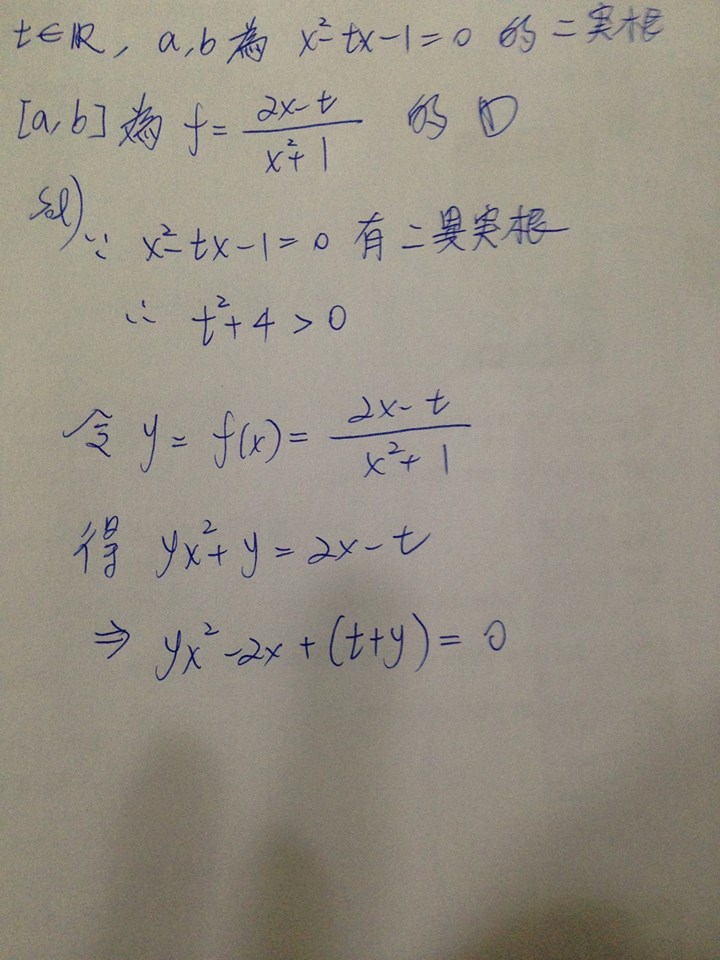 t∈ℝ, a,b 為 x²-tx-1=0 的二実根
[a,b] 為 f= (2x-t)/(x²+1) 的 D
sol) ∵ x²-tx-1=0 有二異実根
∴ t²+4>0
令 y= f(x)= (2x-t)/(x²+1)
得 yx²+y=2x-t
⇒ yx²-2x+(t+y)=0